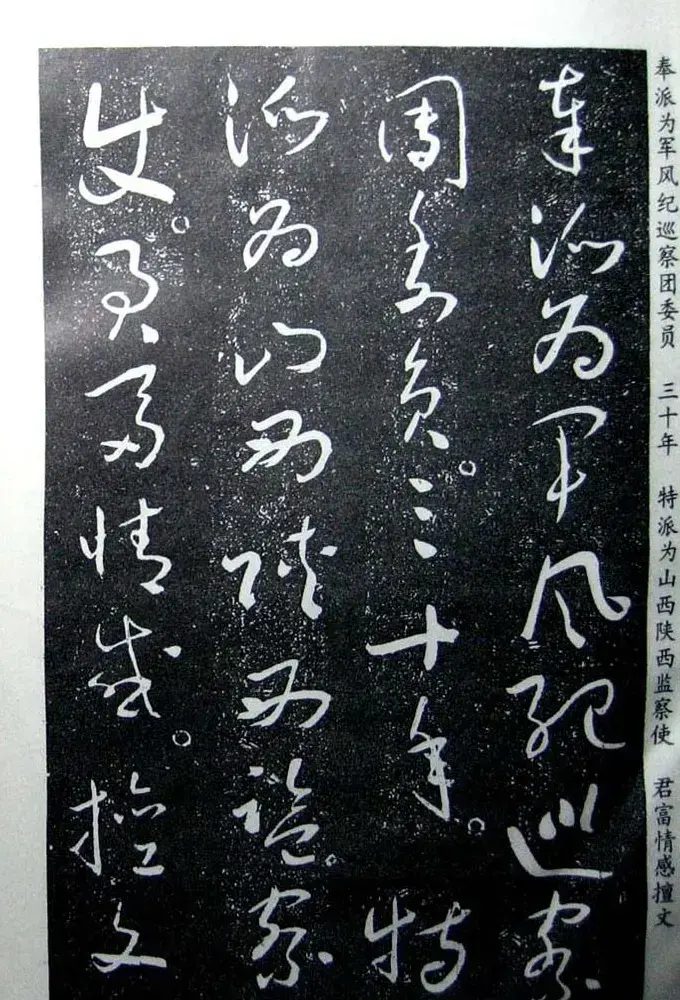 奉派为军风纪巡察
团委员。三十年。特
派为山西陕西监察
使。君富情感。擅文
奉派为军风纪巡察团委员 三十年 特派为山西陕西监察使 君富情感擅文